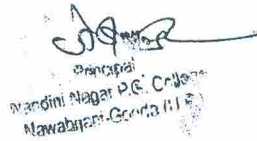 Principal
Nandini Nagar P.G. College
Nawabganj-Gonda (U.P.)